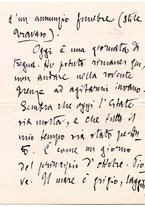 d'un annunzio funebre (stile
Oggi è una giornata di
tregua. Ho potuto rimanere qui,
non andare nella rovente
ad agitarmi invano.
Sembra che oggi l'Estate
sia morta, e che tutto il
mio tempo sia stato perdu-
to. È come un giorno
del principio d'ottobre. Pio-
ve. Il mare è grigio, laggiù